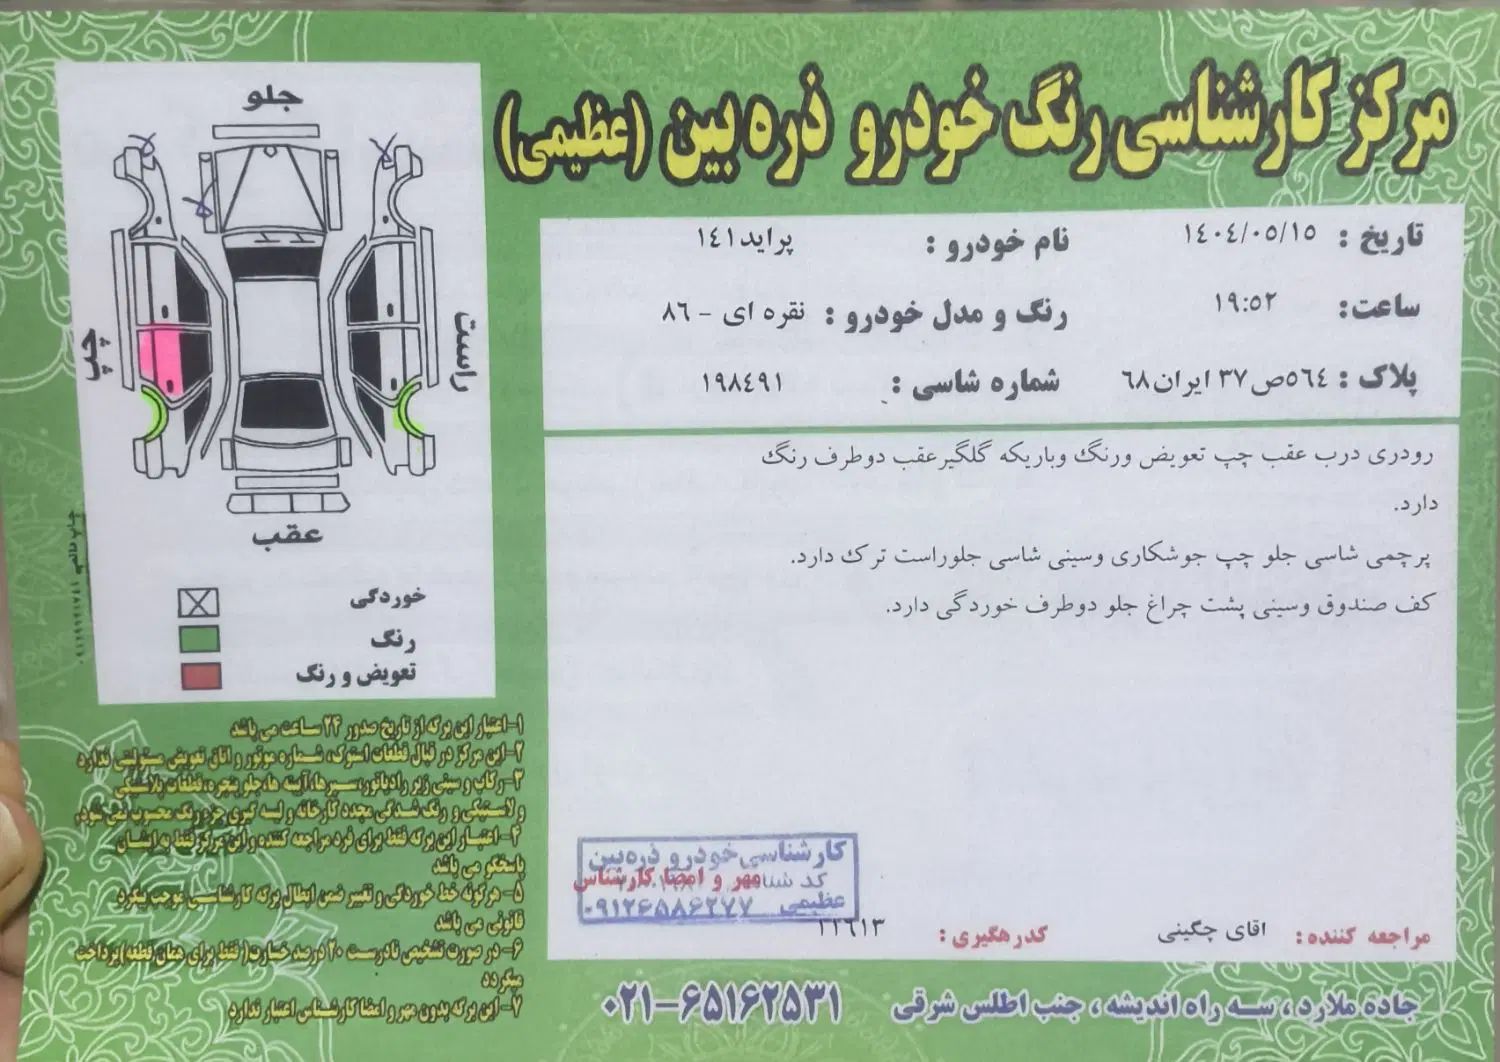 مرکز کارشناسی رنگ خودرو ذره بین (عظیمی)
تاریخ : ١٤٠٤/٠٥/١٥
نام خودرو : پراید١٤١
ساعت: ١٩:٥٢
رنگ و مدل خودرو : نقره ای - ٨٦
پلاک : ٥٦٤ص٣٧ ایران٦٨
شماره شاسی : ١٩٨٤٩١
رودری درب عقب چپ تعویض ورنگ وباریکه گلگیرعقب دوطرف رنگ
دارد.
پرچمی شاسی جلو چپ جوشکاری وسینی شاسی جلوراست ترک دارد.
کف صندوق وسینی پشت چراغ جلو دوطرف خوردگی دارد.
جلو
چپ
راست
عقب
خوردگی
رنگ
تعویض و رنگ
۱-اعتبار این برگه از تاریخ صدور ۲۴ ساعت می باشد
۲-این مرکز در قبال قطعات استوک، شماره موتور و اتاق تعویض مسئولیتی ندارد
۳-رکاب و سینی زیر رادیاتور،سپرها،آینه ها،جلو پنجره،قطعات پلاستیکی
و لاستیکی و رنگ شدگی مجدد کارخانه و لیسه گیری جزء رنگ محسوب نمی شود.
۴-اعتبار این برگه فقط برای فرد مراجعه کننده و این مرکز فقط به ایشان
پاسخگو می باشد
۵-هرگونه خط خوردگی و تغییر ضمن ابطال برگه کارشناسی موجب پیگرد
قانونی می باشد
۶-در صورت تشخیص نادرست ۲۰ درصد خسارت( فقط برای همان قطعه)پرداخت
میگردد
۷-این برگه بدون مهر و امضا کارشناس اعتبار ندارد
کارشناسی خودرو ذره‌بین
کد شنا
مهر و امضا کارشناس
عظیمی ۰۹۱۲۶۵۸۶۲۷۷
مراجعه کننده: اقای چگینی
کدرهگیری: ١١٦١٣
جاده ملارد، سه راه اندیشه، جنب اطلس شرقی ۰۲۱-۶۵۱۶۲۵۳۱